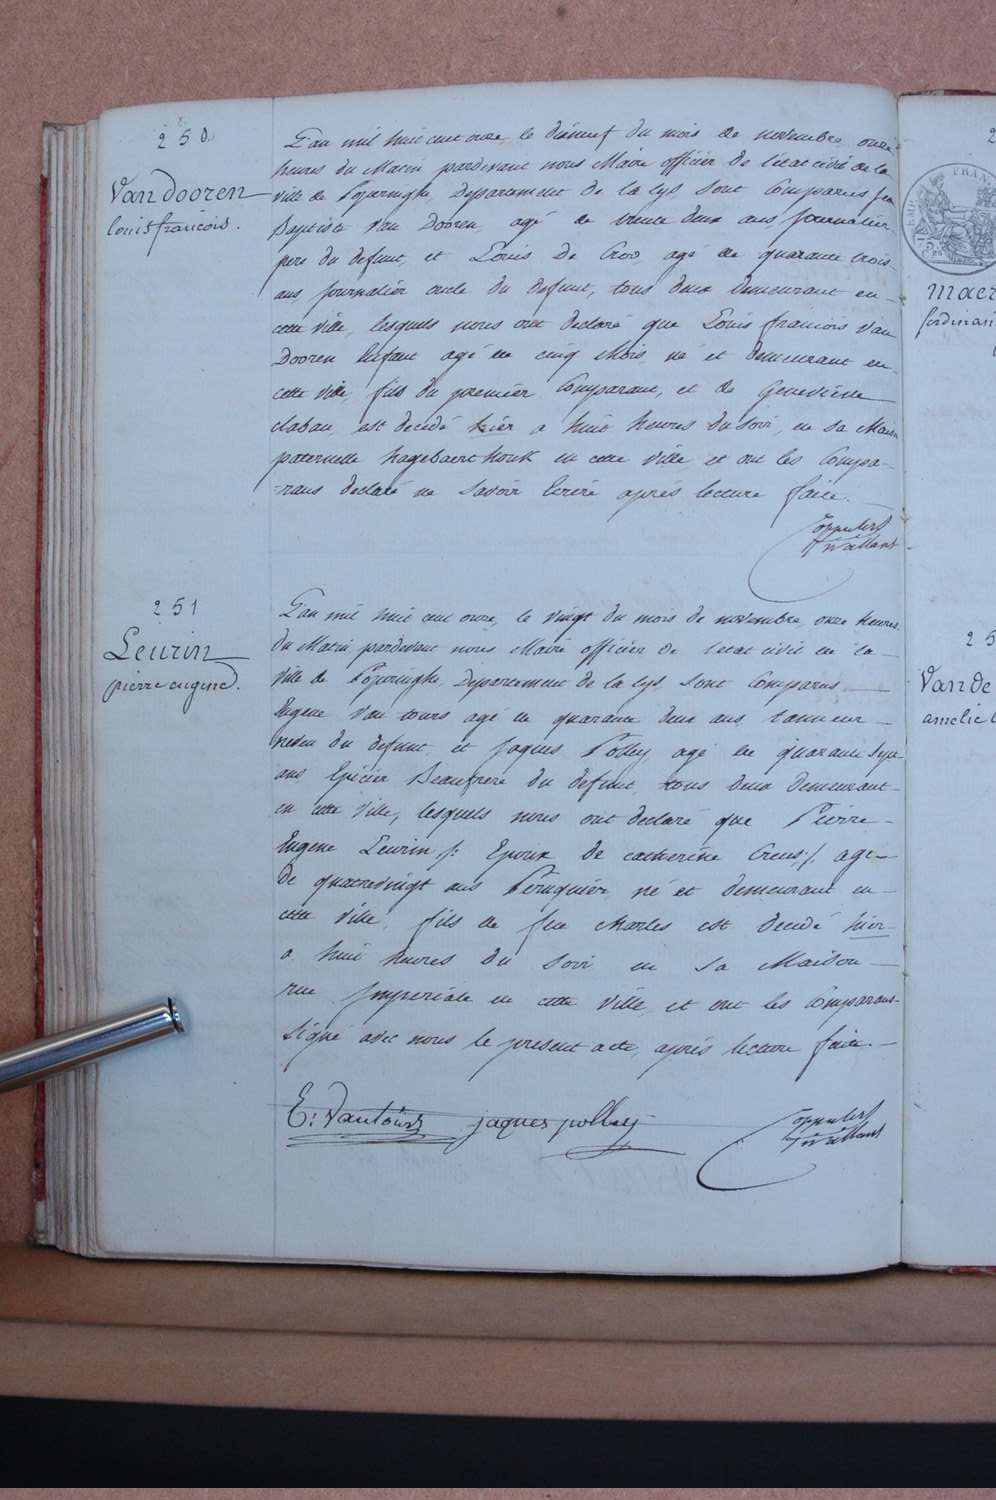 250
Van dooren
louis françois.
L'an mil huit cent onze, le dixneuf du mois de novembre onze
heures du Matin pardevant nous Maire officier de l'etat civil de la
ville de Poperinghe, Departement de la lys sont Comparus jean
Baptiste Van Dooren, agé de trente deux ans, journalier
pere du defunt, et Louis De Croo, agé de quarante trois
ans, journalier oncle du defunt, tous deux demeurant en
cette ville, lesquels nous ont declaré que Louis francois Van
Dooren Enfant agé de cinq Mois, né et demeurant en
cette ville, fils du premier Comparant, et de Genevieve
claban, est decedé hier a huit heures du Soir, en sa Maison
paternelle hagebaert houk en cette ville, et ont les Compa-
-rans declaré ne Savoir Ecrire après lecture faite.
251
Leurin
pierre eugene.
L'an mil huit cent onze, le vingt du mois de novembre, onze heures
du Matin pardevant nous Maire officier de l'etat civil de la
ville de Poperinghe, Departement de la lys sont Comparus
Eugene Van tours agé de quarante deux ans tanneur
neveu du defunt, et Jaques Polley, agé de quarante Sept
ans Epicier Beaufrere du defunt, tous deux Demeurant
en cette ville, lesquels nous ont declaré que Pierre
Eugene Leurin /: Epoux de catherine Creus :/, agé
de quatrevingt ans Péruquier, né et demeurant en
cette ville, fils de feu charles est decedé hier
a huit heures du Soir en sa Maison
rue Imperiale en cette ville, et ont les Comparans
Signé avec nous le present acte, après lecture faite.
E: Vantours jaques polley
Maer
ferdinan
25
Van de
amelie